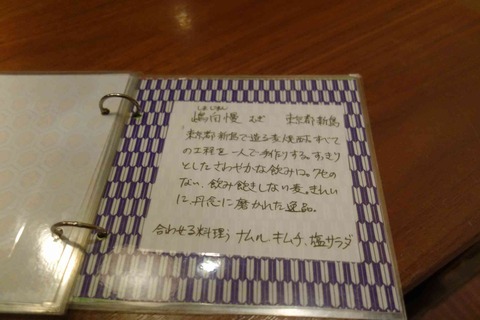 しまじまん
嶋自慢 むぎ 東京都新島
東京都新島で造る麦焼酎。すべて
の工程を一人で手作りする。すっきり
としたさわやかな飲み口。クセの
ない、飲み飽きしない麦。きれい
に、丹念に磨かれた逸品。
合わせる料理) ナムル キムチ、塩サラダ